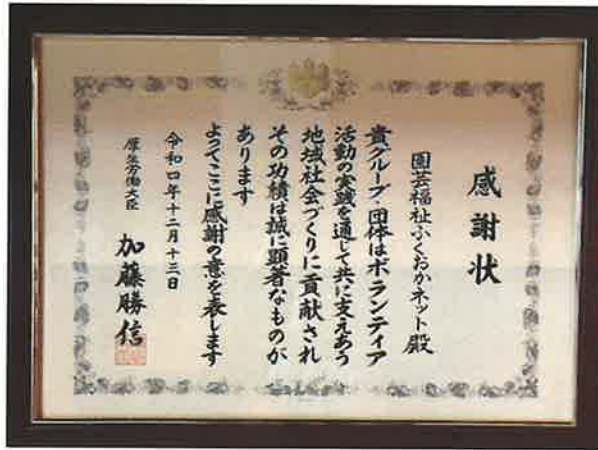 感謝状
園芸福祉ふくおかネット殿
貴グループ・団体はボランティア
活動の実践を通じて共に支えあう
地域社会づくりに貢献され
その功績は誠に顕著なものが
あります
よってここに感謝の意を表します
令和四年十二月十三日
厚生労働大臣 加藤勝信